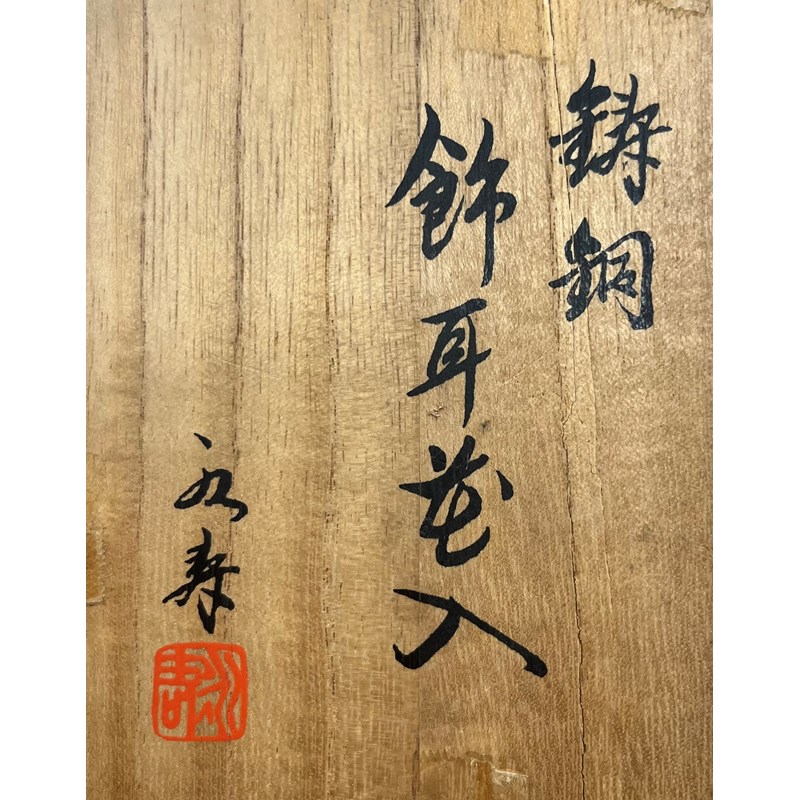 鋳銅
飾耳花入
永寿